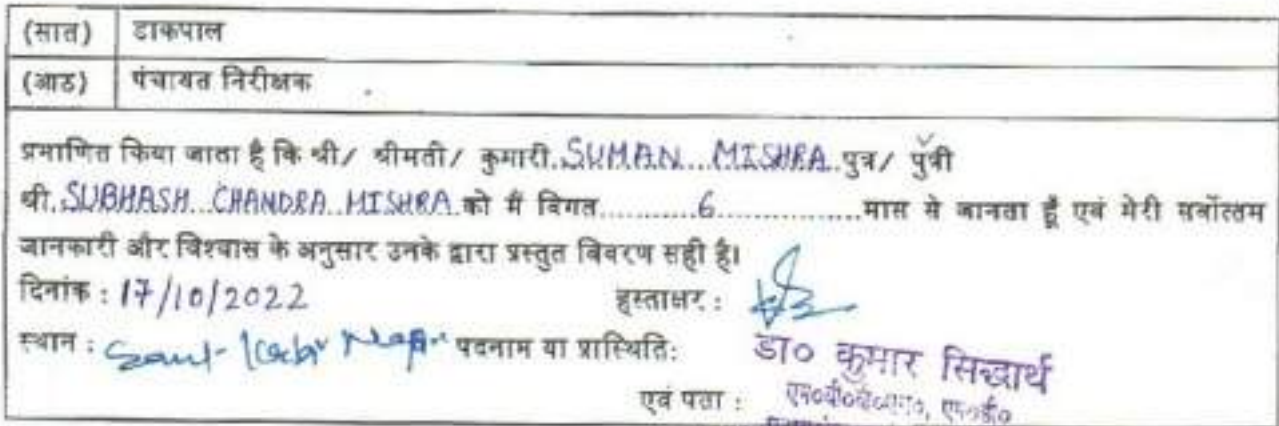 (सात) डाकपाल
(आठ) पंचायत निरीक्षक
प्रमाणित किया जाता है कि श्री/ श्रीमती/ कुमारी.SUMAN...MISHRA.पुत्र/ पुत्री
श्री.SUBHASH..CHANDRA..MISHRA.को मैं विगत............6................मास से जानता हूँ एवं मेरी सर्वोत्तम
जानकारी और विश्वास के अनुसार उनके द्वारा प्रस्तुत विवरण सही है।
दिनांक : 17/10/2022 हस्ताक्षर :
स्थान : Sant Kabir Nagar पदनाम या प्रास्थिति: डा० कुमार सिद्धार्थ
एवं पता :